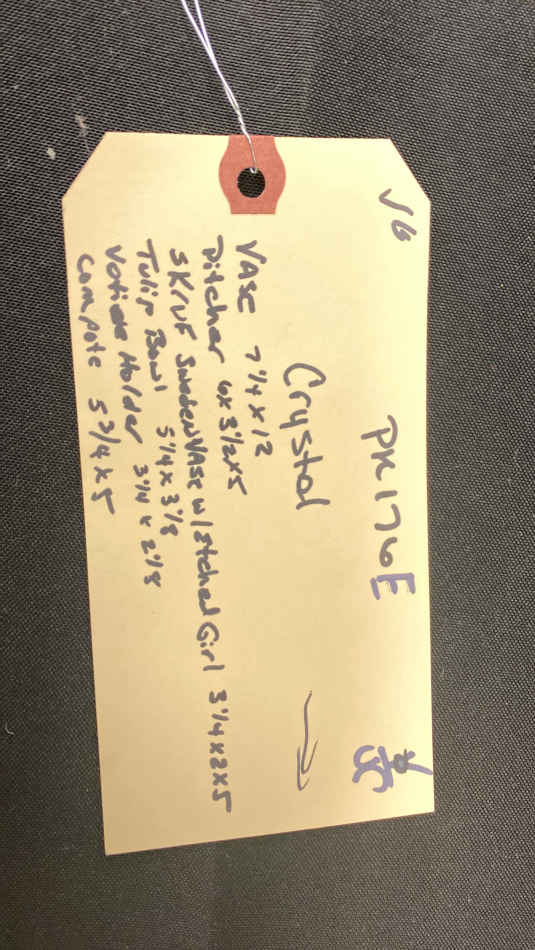 JG
PK176E
Crystal
VASE 7 1/4 x 12
Pitcher 6x 3 1/2 x 5
SK/UF Sweden VASE w/ Etched Girl 3 1/4 x 2 x 5
Tulip Bowl 5 1/4 x 3 1/8
Votice Holder 3 1/4 x 2 1/8
Compote 5 3/4 x 5